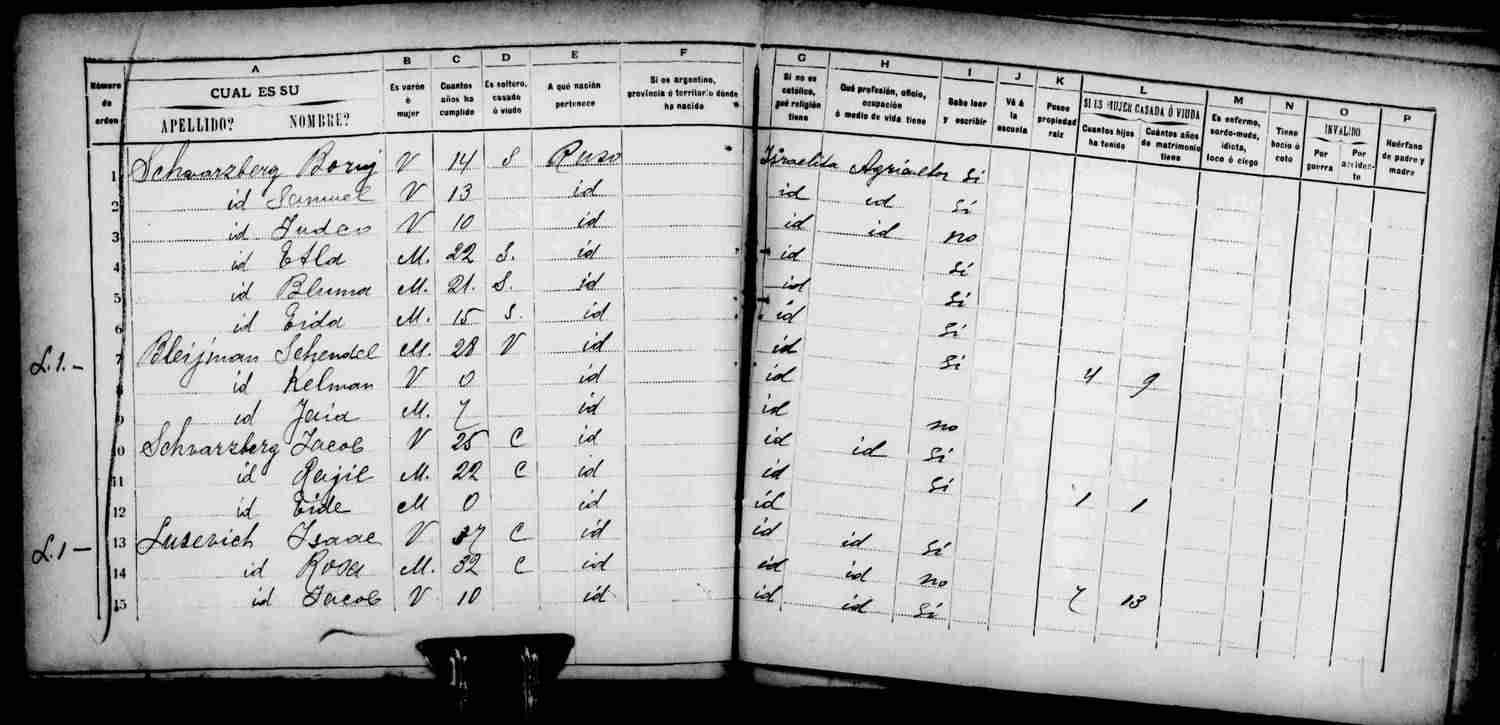 A B C D E F G H I J K L M N O P
Número de orden
CUAL ES SU
APELLIDO? NOMBRE?
Es varón ó mujer
Cuantos años ha cumplido
Es soltero, casado ó viudo
A qué nación pertenece
Si es argentino, provincia ó territorio donde ha nacido
Si no es católico, qué religión tiene
Qué profesión, oficio, ocupación ó medio de vida tiene
Sabe leer y escribir
Vá á la escuela
Posee propiedad raiz
SI ES MUJER CASADA Ó VIUDA
Cuantos hijos ha tenido
Cuántos años de matrimonio tiene
Es enfermo, sordo-mudo, idiota, loco ó ciego
Tiene bocio ó coto
INVALIDO
Por guerra
Por accidente
Huérfano de padre y madre
1 Schwarzberg Boruj V 14 S Ruso Israelita Agricultor Sí
2 id Samuel V 13 id id id Sí
3 id V 10 id id id no
4 id Etla M. 22 S. id id Sí
5 id Bluma M. 21. S. id id Sí
6 id Eida M. 15 S. id id Sí
L.1.- 7 Bleijman Schendel M. 28 V id id Sí 4 9
8 id Kelman V 0 id id
9 id M. 7 id id no
10 Schvarzberg Jacob V 25 C id id id Sí
11 id Rejil M. 22 C id id Sí 1 1
12 id Eide M 0 id id
L.1 - 13 Lusevich Isaac V 37 C id id id Sí
14 id Rosa M. 32 C id id id no 7 13
15 id Jacob V 10 id id id Sí